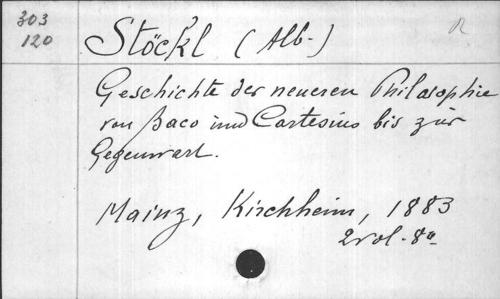 303
120
Stöckl (Alb-)
Geschichte der neueren Philosophie
von Baco und Cartesius bis zur
Gegenwart.
Mainz, Kirchheim, 1883
2 vol. 8º